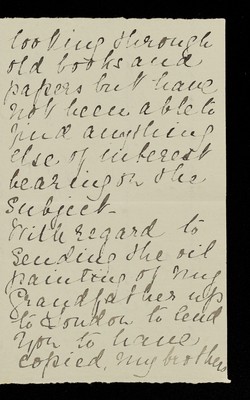 looking through
old books and
papers but have
not been able to
find anything
else of interest
bearing on the
Subject -
With regard to
sending the oil
painting of my
Grandfather up
to London to lend
you to have
copied, my brothers